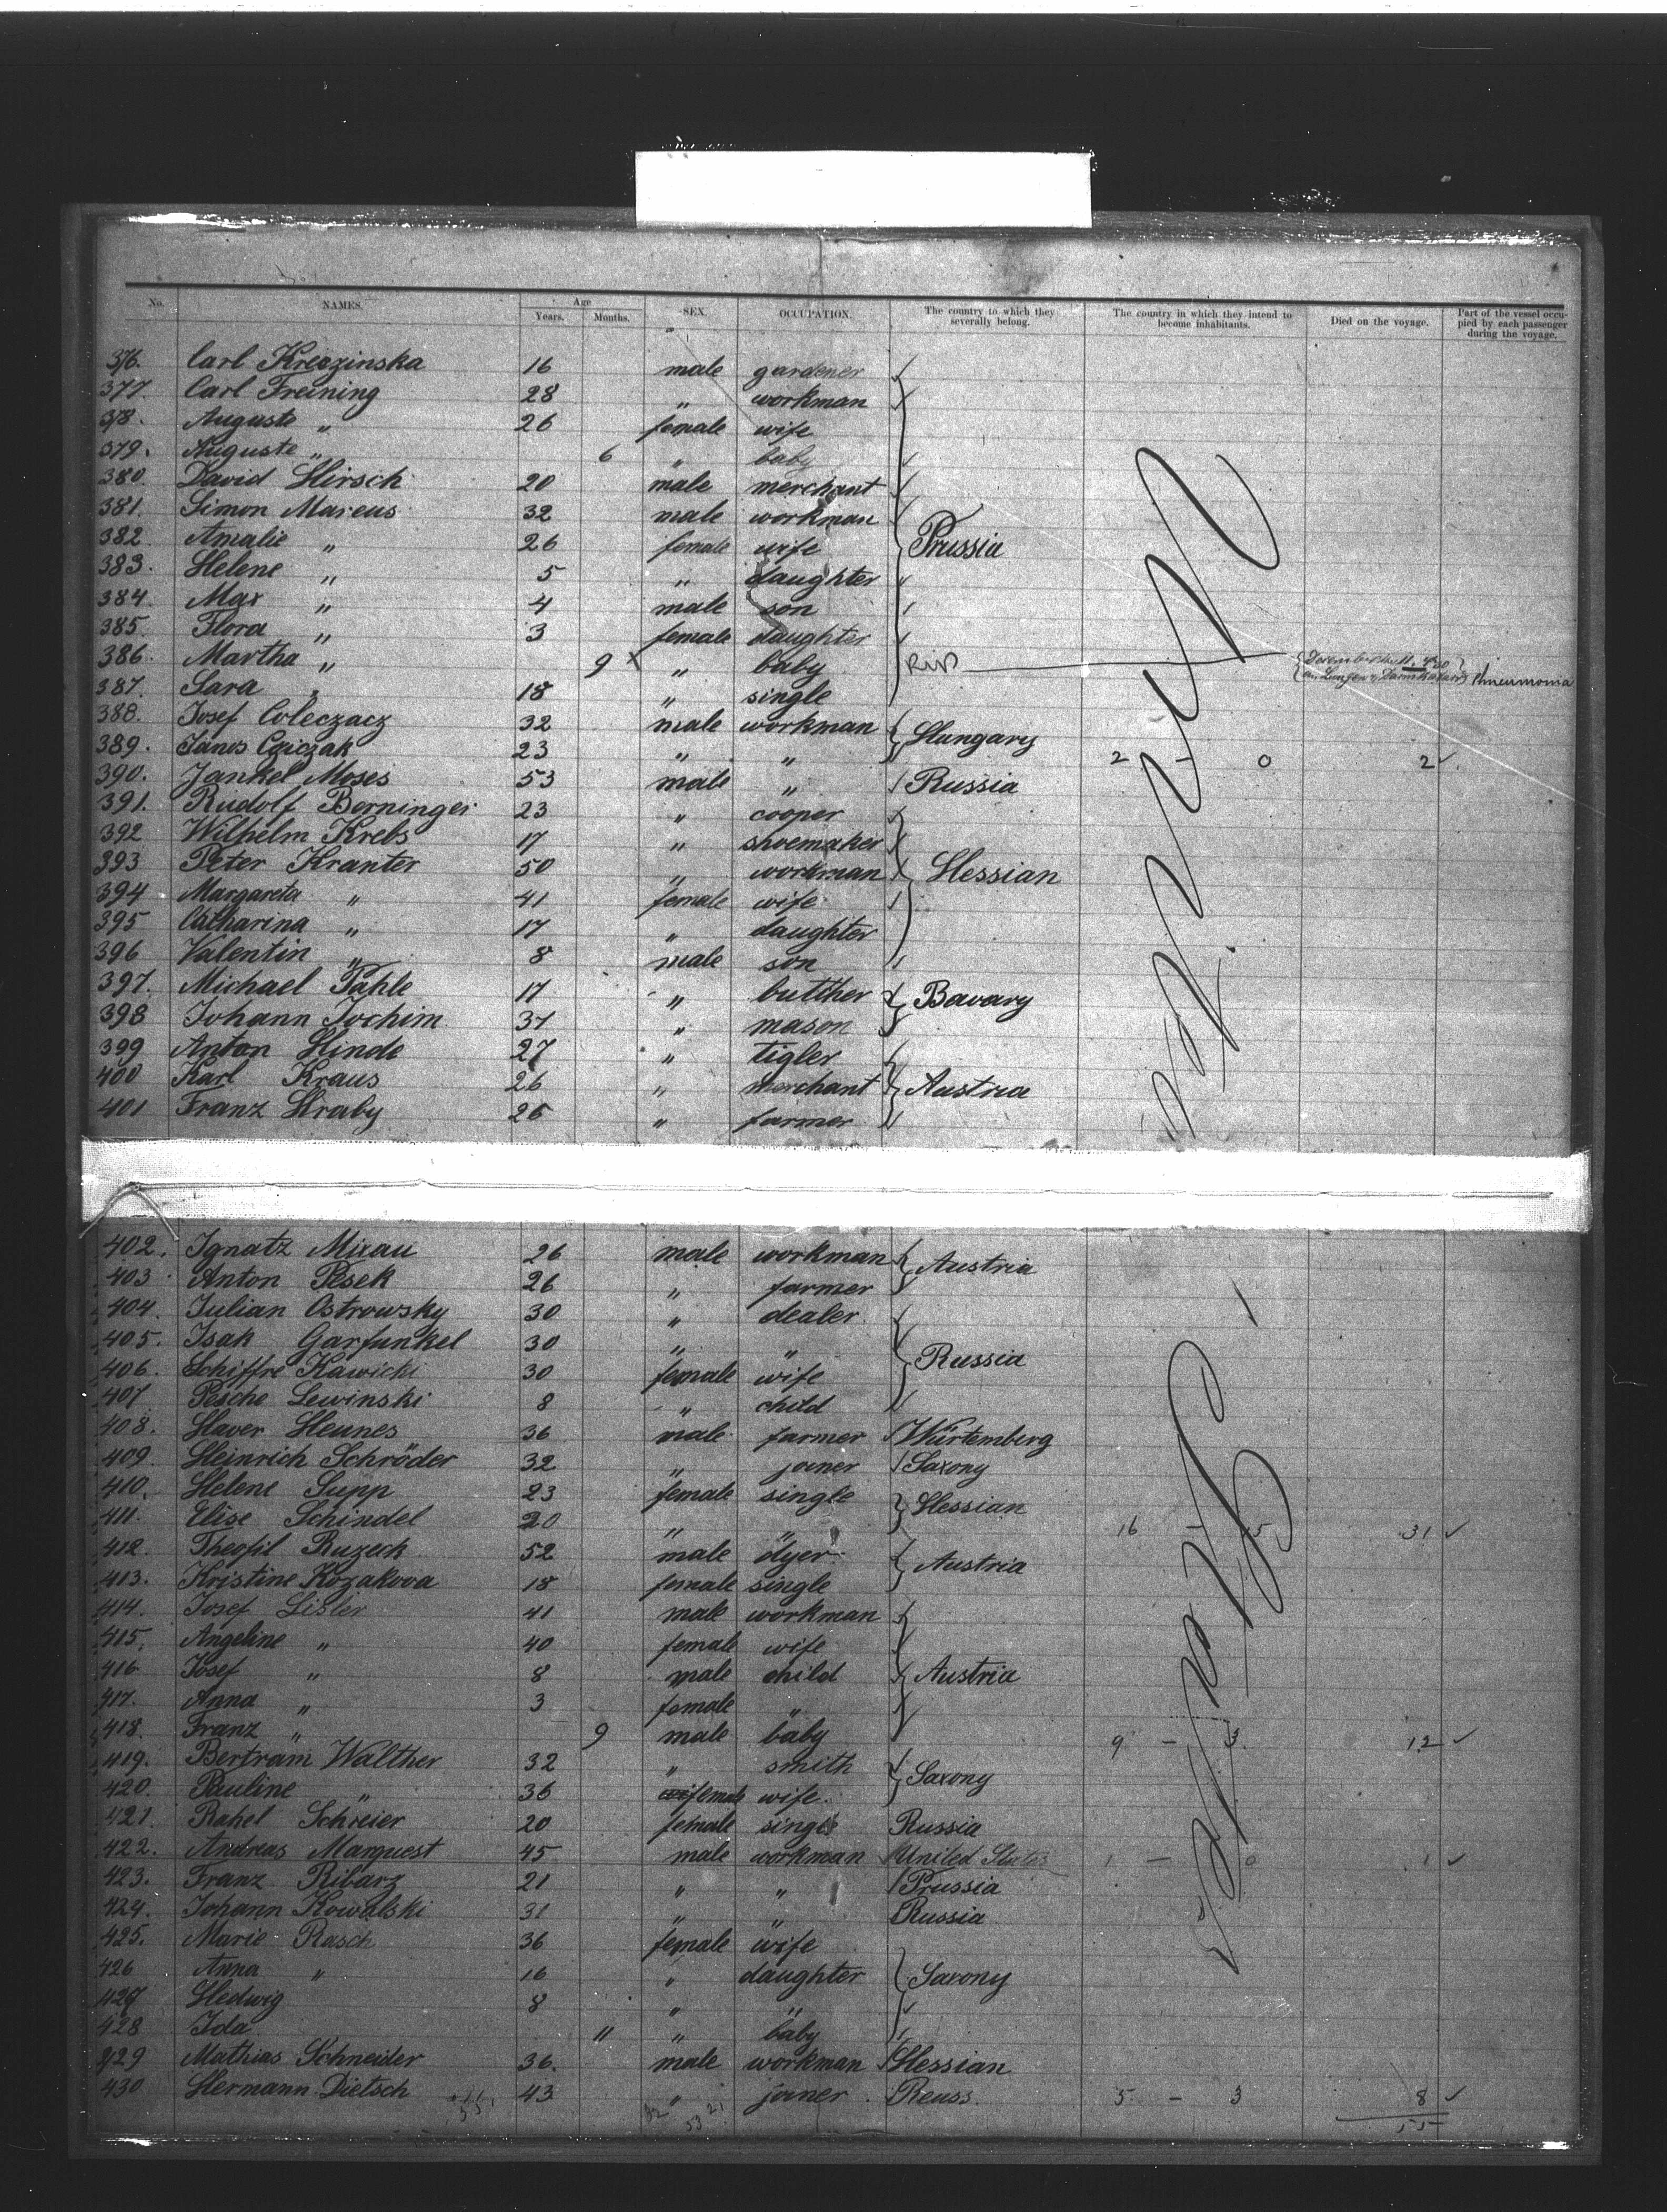 No. NAMES. Age Years. Months. SEX. OCCUPATION. The country to which they severally belong. The country in which they intend to become inhabitants. Died on the voyage. Part of the vessel occupied by each passenger during the voyage.
376. Carl Kreczinska 16 male gardener
377. Carl Freining 28 " workman
378. Auguste " 26 female wife
379. Auguste " 6 " baby
380. David Hirsch 20 male merchant
381. Simon Marcus 32 male workman
382. Amalie " 26 female wife Prussia
383. Helene " 5 " daughter
384. Max " 4 male son
385. Flora " 3 female daughter
386. Martha " 9 x " baby RIP Pneumonia
387. Sara " 18 " single
388. Josef Coleczacz 32 male workman Hungary
389. Janos 23 " " 2 - 0 2
390. Jankel Moses 53 male " Russia
391. Rudolf Berninger 23 " cooper
392 Wilhelm Krebs 17 " shoemaker
393 Peter Kranter 50 " workman Hessian
394 Margareta " 41 female wife
395 Catharina " 17 " daughter
396 Valentin " 8 male son
397. Michael Pahle 17 " butcher Bavary
398 Johann Jochim 37 " mason
399 Anton Hinde 27 " tigler
400 Karl Kraus 26 " merchant Austria
401 Franz Hraby 26 " farmer
402. Ignatz Mixau 26 male workman Austria
403 Anton Pesek 26 " farmer
404. Julian Ostrowsky 30 " dealer
405. Isak Garfunkel 30 " "
406. Schiffre Kawicki 30 female wife Russia
407 Pesche Lewinski 8 " child
408. Haver Heunes 36 male farmer Würtemberg
409. Heinrich Schröder 32 " joiner Saxony
410. Helene Supp 23 female single Hessian
411. Elise Schindel 20 " " 16 - 15 31
412. Theofil Ruzeck 52 male dyer Austria
413. Kristine Kozakova 18 female single
414. Josef Lisler 41 male workman
415. Angeline " 40 female wife
416 Josef " 8 male child Austria
417. Anna " 3 female "
418. Franz " 9 male baby 9 - 3. 12
419. Bertram Walther 32 " smith Saxony
420. Pauline " 36 female wife
421. Rahel Schreier 20 female single Russia
422. Andreas Marquest 45 male workman United States 1 - 0 1
423. Franz Ribarz 21 " " Prussia
424. Johann Kowalski 31 " " Russia
425. Marie Rasch 36 female wife
426 Anna " 16 " daughter Saxony
427 Hedwig 8 " "
428 Ida 11 " baby
429 Mathias Schneider 36. male workman Hessian
430 Hermann Dietsch 43 " joiner Reuss. 5 - 3 8
55